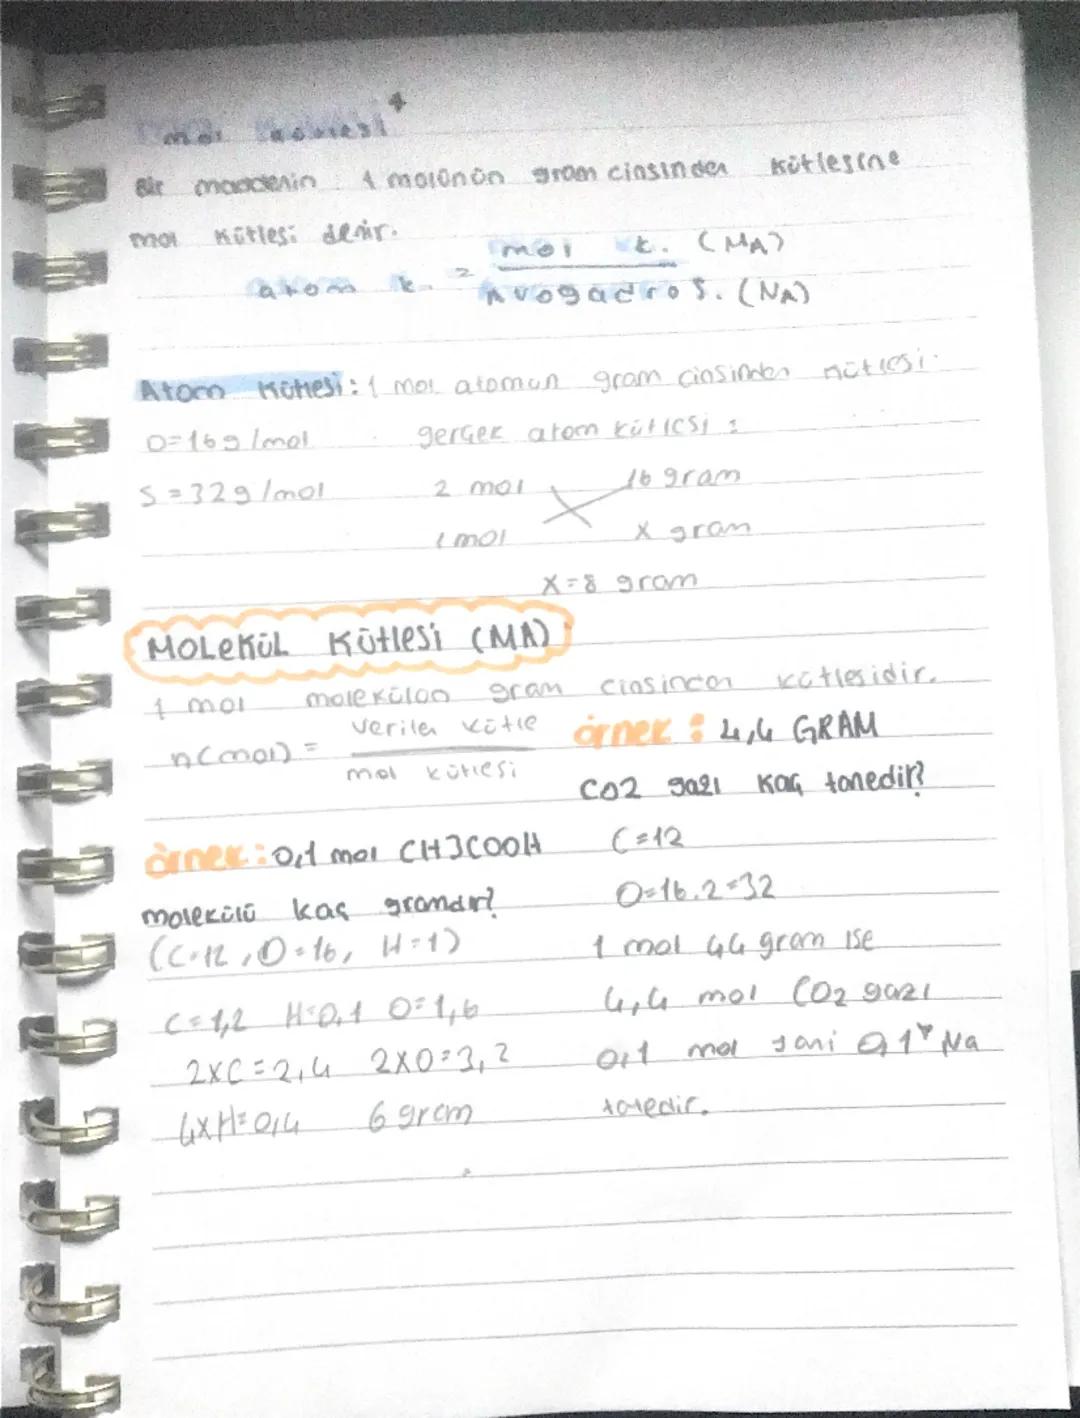 mol kütlesi
Bir maddenin 1 molünün gram cinsinden kütlesine
mol kütlesi denir.
atom k. = mol k. (MA)
Avogadro s. (NA)
Atom Kütlesi: 1 mol atomun gram cinsinden kütlesi.
O=16g/mol gerçek atom kütlesi :
S=32g/mol 2 mol 16 gram
1 mol X gram
X=8 gram
MOLEKÜL KÜTLESİ (MA)
1 mol molekülün gram cinsinden kütlesidir.
n(mol) = verilen kütle
mol kütlesi
örnek : 4,4 GRAM
CO2 gazı kaç tanedir?
C=12
O=16.2=32
1 mol 44 gram ise
4,4 mol CO2 gazı
0,1 mol yani 0,1* Na
tanedir.
örnek : 0,1 mol CH3COOH
molekülü kaç gramdır?
(C=12, O=16, H=1)
C=1,2 H=0,1 O=1,6
2XC=2,4 2XO=3,2
4XH=0,4 6 gram